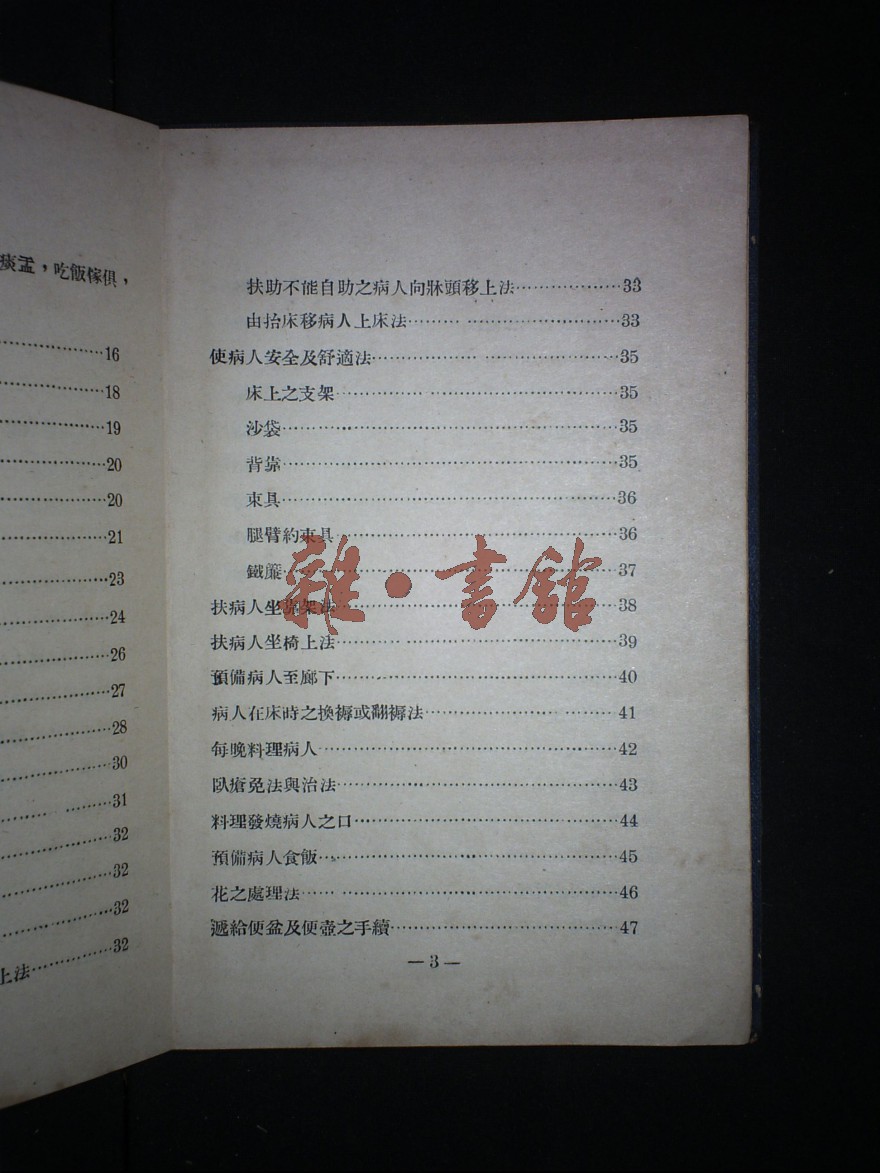 痰盂，吃飯傢俱，
16
18
19
20
20
21
23
24
26
27
28
30
31
32
32
32
上法…………32
扶助不能自助之病人向牀頭移上法………………33
由抬床移病人上床法………………33
使病人安全及舒適法………………35
床上之支架………………35
沙袋………………35
背靠………………35
束具………………36
腿臂約束具………………36
鐵簾………………37
扶病人坐靠架法………………38
扶病人坐椅上法………………39
預備病人至廊下………………40
病人在床時之換褥或翻褥法………………41
每晚料理病人………………42
臥瘡免法與治法………………43
料理發燒病人之口………………44
預備病人食飯………………45
花之處理法………………46
遞給便盆及便壺之手續………………47
— 3 —
雜·書館